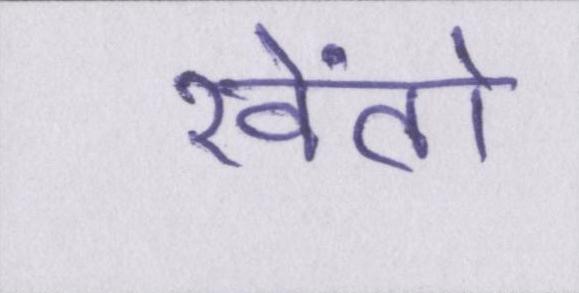 खेंतो